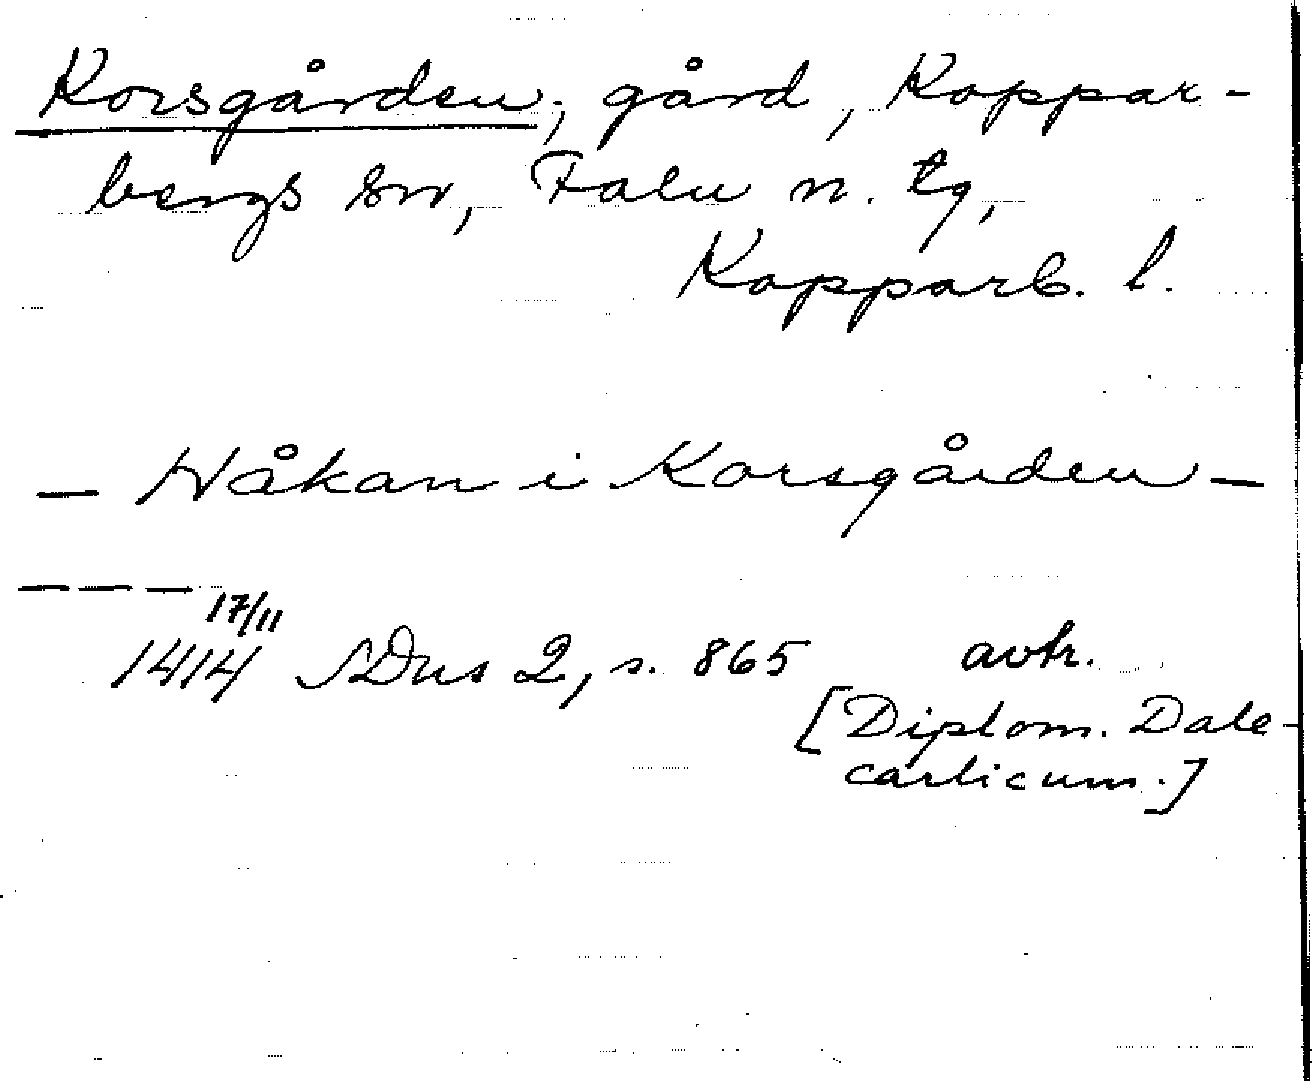 Korsgården, gård, Koppar-
bergs sn, Falu n. tg,
Kopparb. l.
— Håkan i Korsgården —
— — —
17/11
1414 SDns 2, s. 865 avtr.
[Diplom. Dale-
carlicum.]